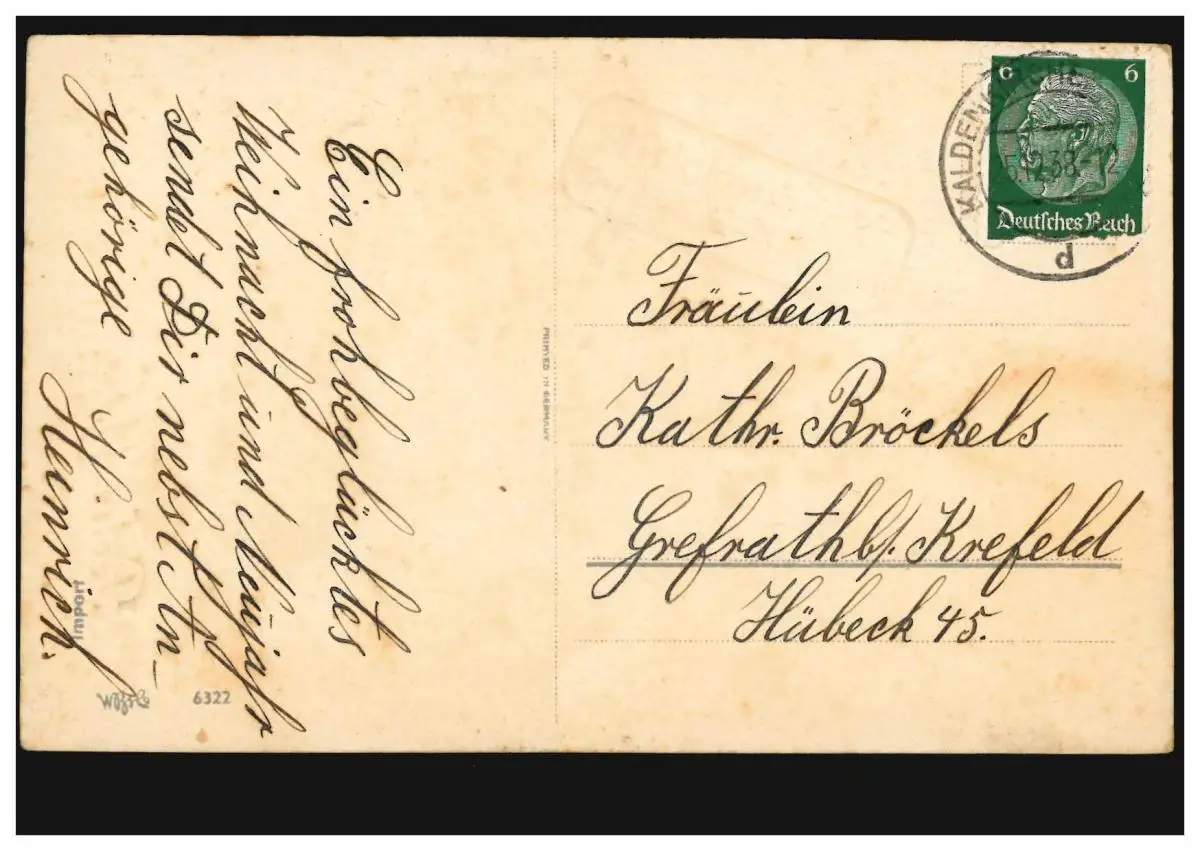 Ein frohbeglücktes
Weihnacht und Neujahr
sendet Dir nebst An-
gehörige
Heinrich.
Import
6322
PRINTED IN GERMANY
6 6
Deutsches Reich
12.38-12
d
Fräulein
Kathr. Bröckels
Grefrath b/. Krefeld
Hübeck 45.